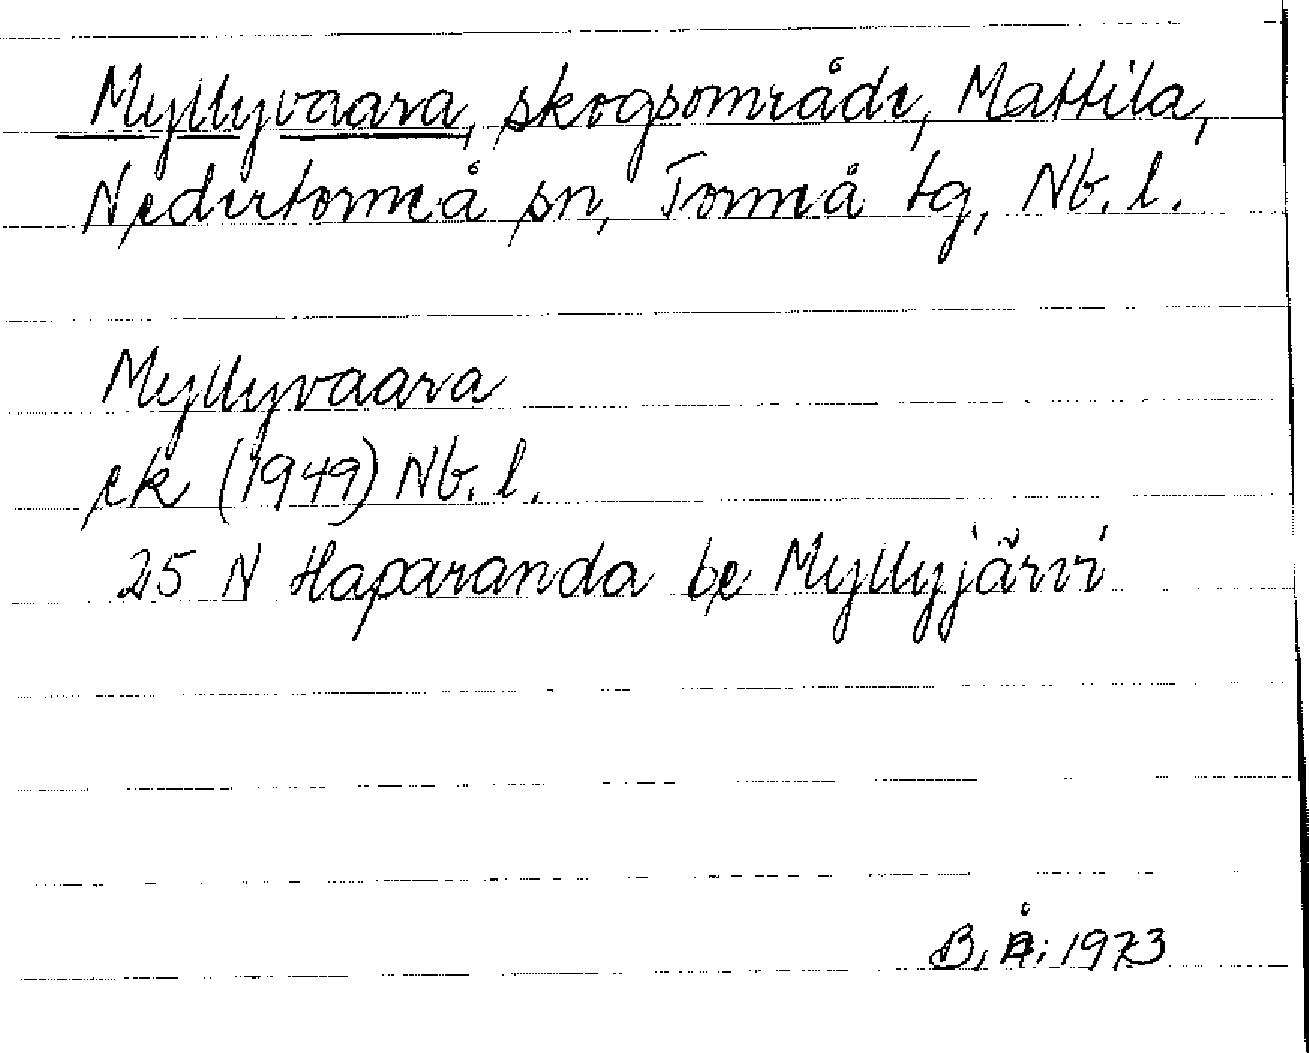 Myllyvaara, skogsområde, Mattila,
Nedertorneå sn, Torneå tg, Nb. l.
Myllyvaara
ek (1949) Nb. l.
25 N Haparanda be Myllyjärvi
B, Å; 1973